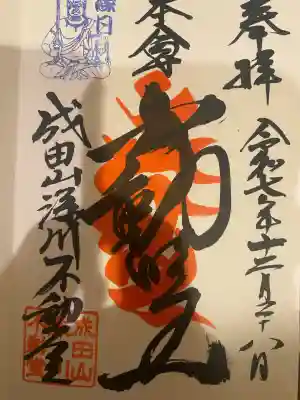 奉拝
令和七年十二月二十八日
本尊
不動明王
成田山深川不動堂
成田山
不動堂